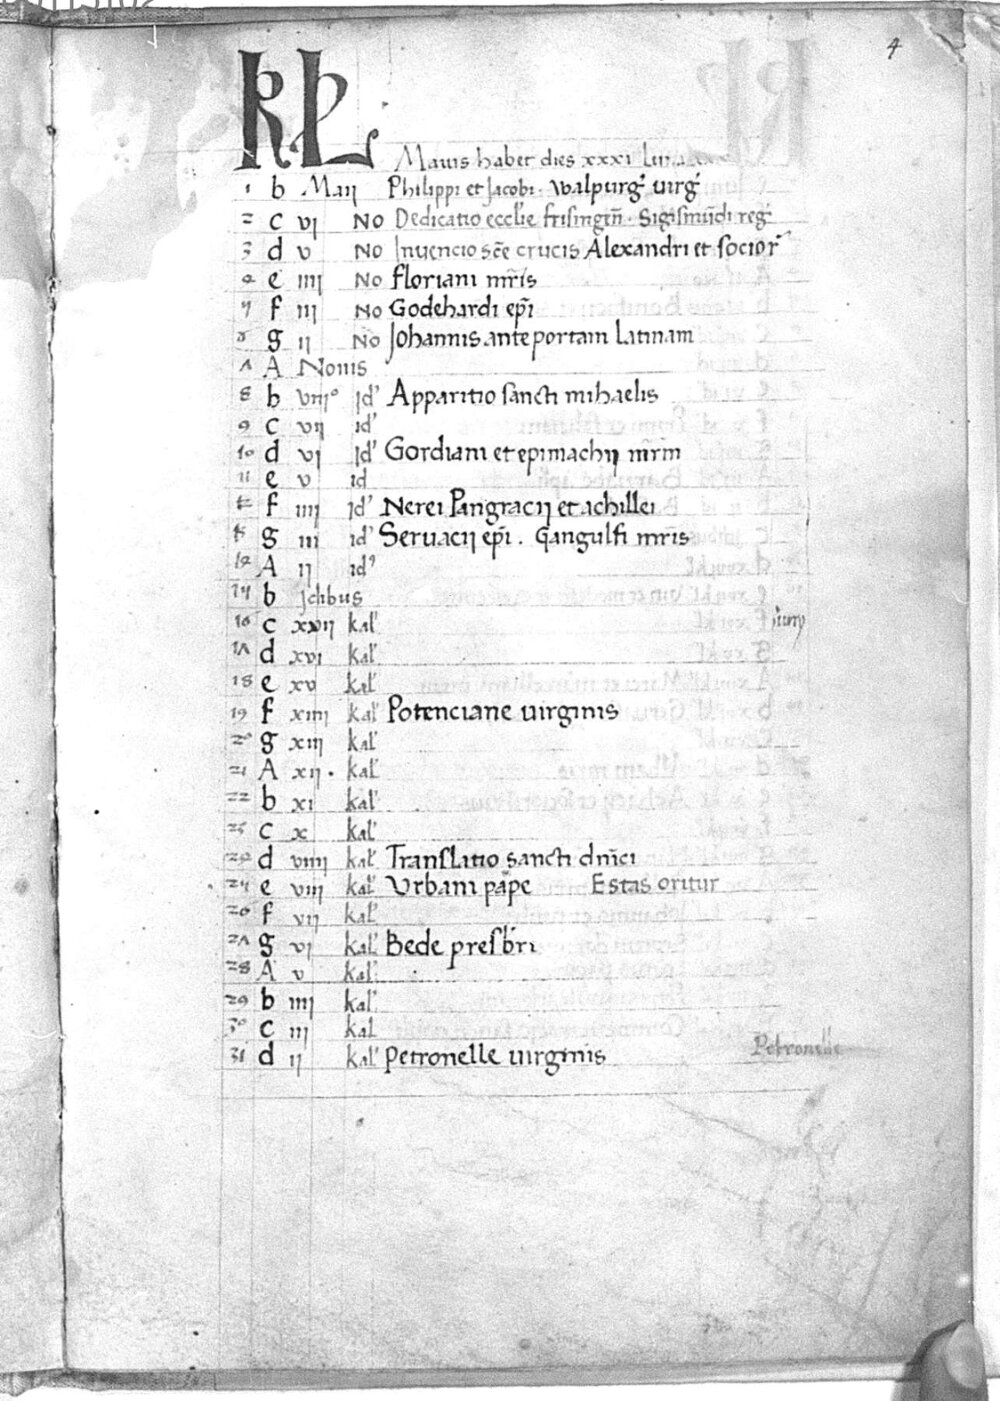 4
KL Maius habet dies xxxi luna
1 b Maij Philippi et Jacobi. walpurg' uirg'
2 c vj NO Dedicatio eccl'ie frisingen̄. Sigismūdi reg'
3 d v NO Inuencio sc̄e crucis Alexandri et socior'
4 e iiij NO floriani mr̄is
5 f iij NO Godehardi ep̄i
6 g ij NO Johannis ante portam latinam
7 A Nonis
8 b viij° id' Apparitio sancti mihaelis
9 c vij id'
10 d vj id' Gordiani et epimachij mr̄m
11 e v id
12 f iiij id' Nerei Pangracij et achillei
13 g iii id' Seruacij ep̄i. gangulfi mr̄is
14 A ij id'
15 b Jdibus
16 c xvij kal' iunij
17 d xvi kal'
18 e xv kal'
19 f xiiij kal' Potenciane uirginis
20 g xiij kal'
21 A xij. kal'
22 b xi kal'
23 c x kal'
24 d viiij kal' Translatio sancti dn̄ici
25 e viij kal' Urbani pape Estas oritur
26 f vij kal'
27 g vj kal' Bede presb'ri
28 A v kal'
29 b iiij kal'
30 c iij kal
31 d ij kal' Petronelle uirginis Petronelle